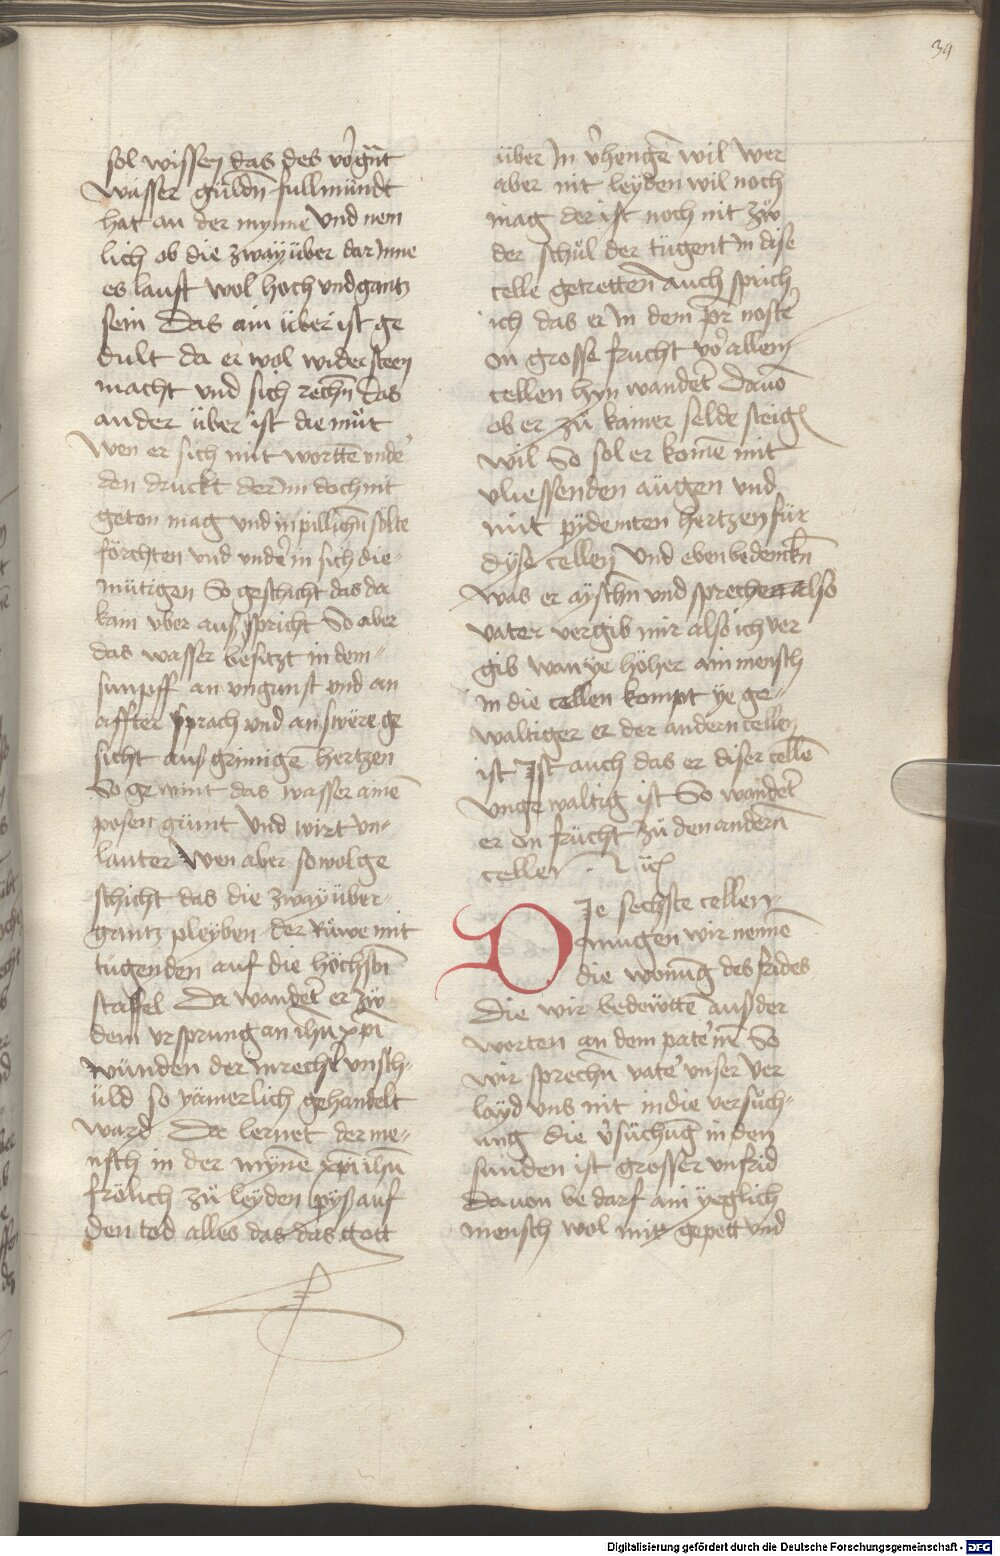 34
sol wissen das des vo᷑gut̄
wasser guldn̄ fullmündt
hat an der mynne vnd nem
lich ob die zway über dar Inne
es lauft wol hoch vnd gantz
sein Das ain über ist ge
dult da er wol widersteen
macht vnd sich rechn̄ das
ander über ist diemůt
Wen er sich mit wortte᷑ vnde᷑
den druckt dem doch nit
geton mag vnd in pillichn̄ solte
förchten vnd vnde᷑ in sich die-
mütigen So geschicht das da
kain vber auß spricht So aber
das wasser besitzt in dem-
sumpff an vngunst vnd an
affter sprach vnd an swëre ge
sicht auß grimigē hertzen
So gewint das wasser ainē
posen grunt Vnd wirt vn-
lauter Wen aber so wol ge
schicht das die zway über-
gantz pleyben der Růwe mit
tugenden auf die höchstn̄
staffel Da wandet᷑ er zů
dem vrsprung an ihū xpī
wunden der in rechter vnsch-
uld so yämerlich gehandelt
ward Da lernet der me-
nsch in der mynē xpī ihū
frölich zů leyden pyß auf
den tod alles das das Gott
über In v᷑hengē wil Wer
aber nit leyden wil noch
mag der ist noch nit zů
der schůl der tugent In dise
celle getretten auch sprich
ich das er In dem pr̄ noste᷑
on grosse frucht vo᷑ allen-
cellen hyn wandet᷑ Dauō
ob er zů kainer selde steigē
wil So sol er komē mit
vliessenden augen vnd
mit pydemten hertzen für
dyse cellen Vnd eben bedenckn̄
was er ayschn̄ vnd sprechen also
vater vergib mir also ich ver
gib wan ye höher ain mensch
in die cellen kompt ye ge-
waltiger er der andern cellen
ist Ist auch das er diser cellē
vngewaltig ist So wandet᷑
er on frücht zů den andern̄
cellen
Die sechste cellen-
mugen wir nennē
die wonūg des frides
Die wir bedewttē auß der
worten an dem pate᷑ nr̄ So
wir sprechn̄ vate᷑ vnser Ver
layd vns nit in die versůch-
ung die v᷑süchūg in den
sunden ist grosser vnfrid
Dauon bedarf ain yeglich
mensch wol mit gepett vnd
Digitalisierung gefördert durch die Deutsche Forschungsgemeinschaft - DFG